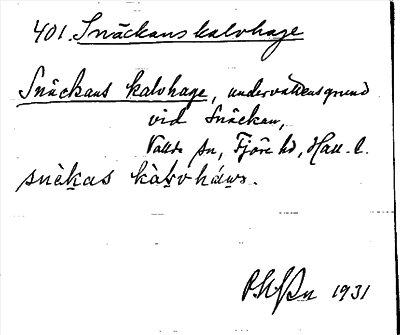 401. Snäckans kalvhage
Snäckans kalvhage, undervattensgrund
vid Snäckan,
Valda sn, Fjäre hd, Hall. l.
snèkas kàḷvháws.
1931